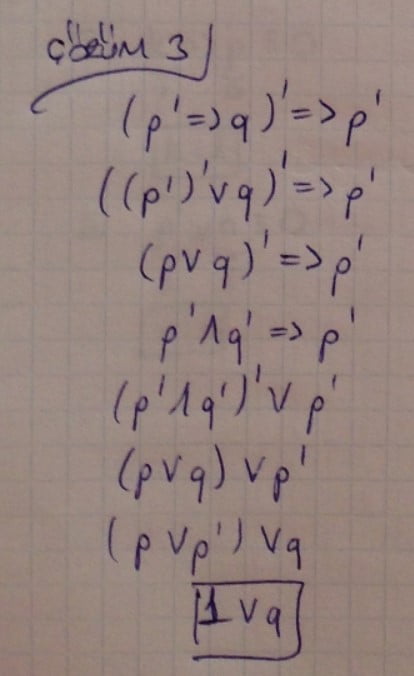 çözüm 3
(p' => q)' => p'
((p')' ∨ q)' => p'
(p ∨ q)' => p'
p' ∧ q' => p'
(p' ∧ q')' ∨ p'
(p ∨ q) ∨ p'
(p ∨ p') ∨ q
1 ∨ q